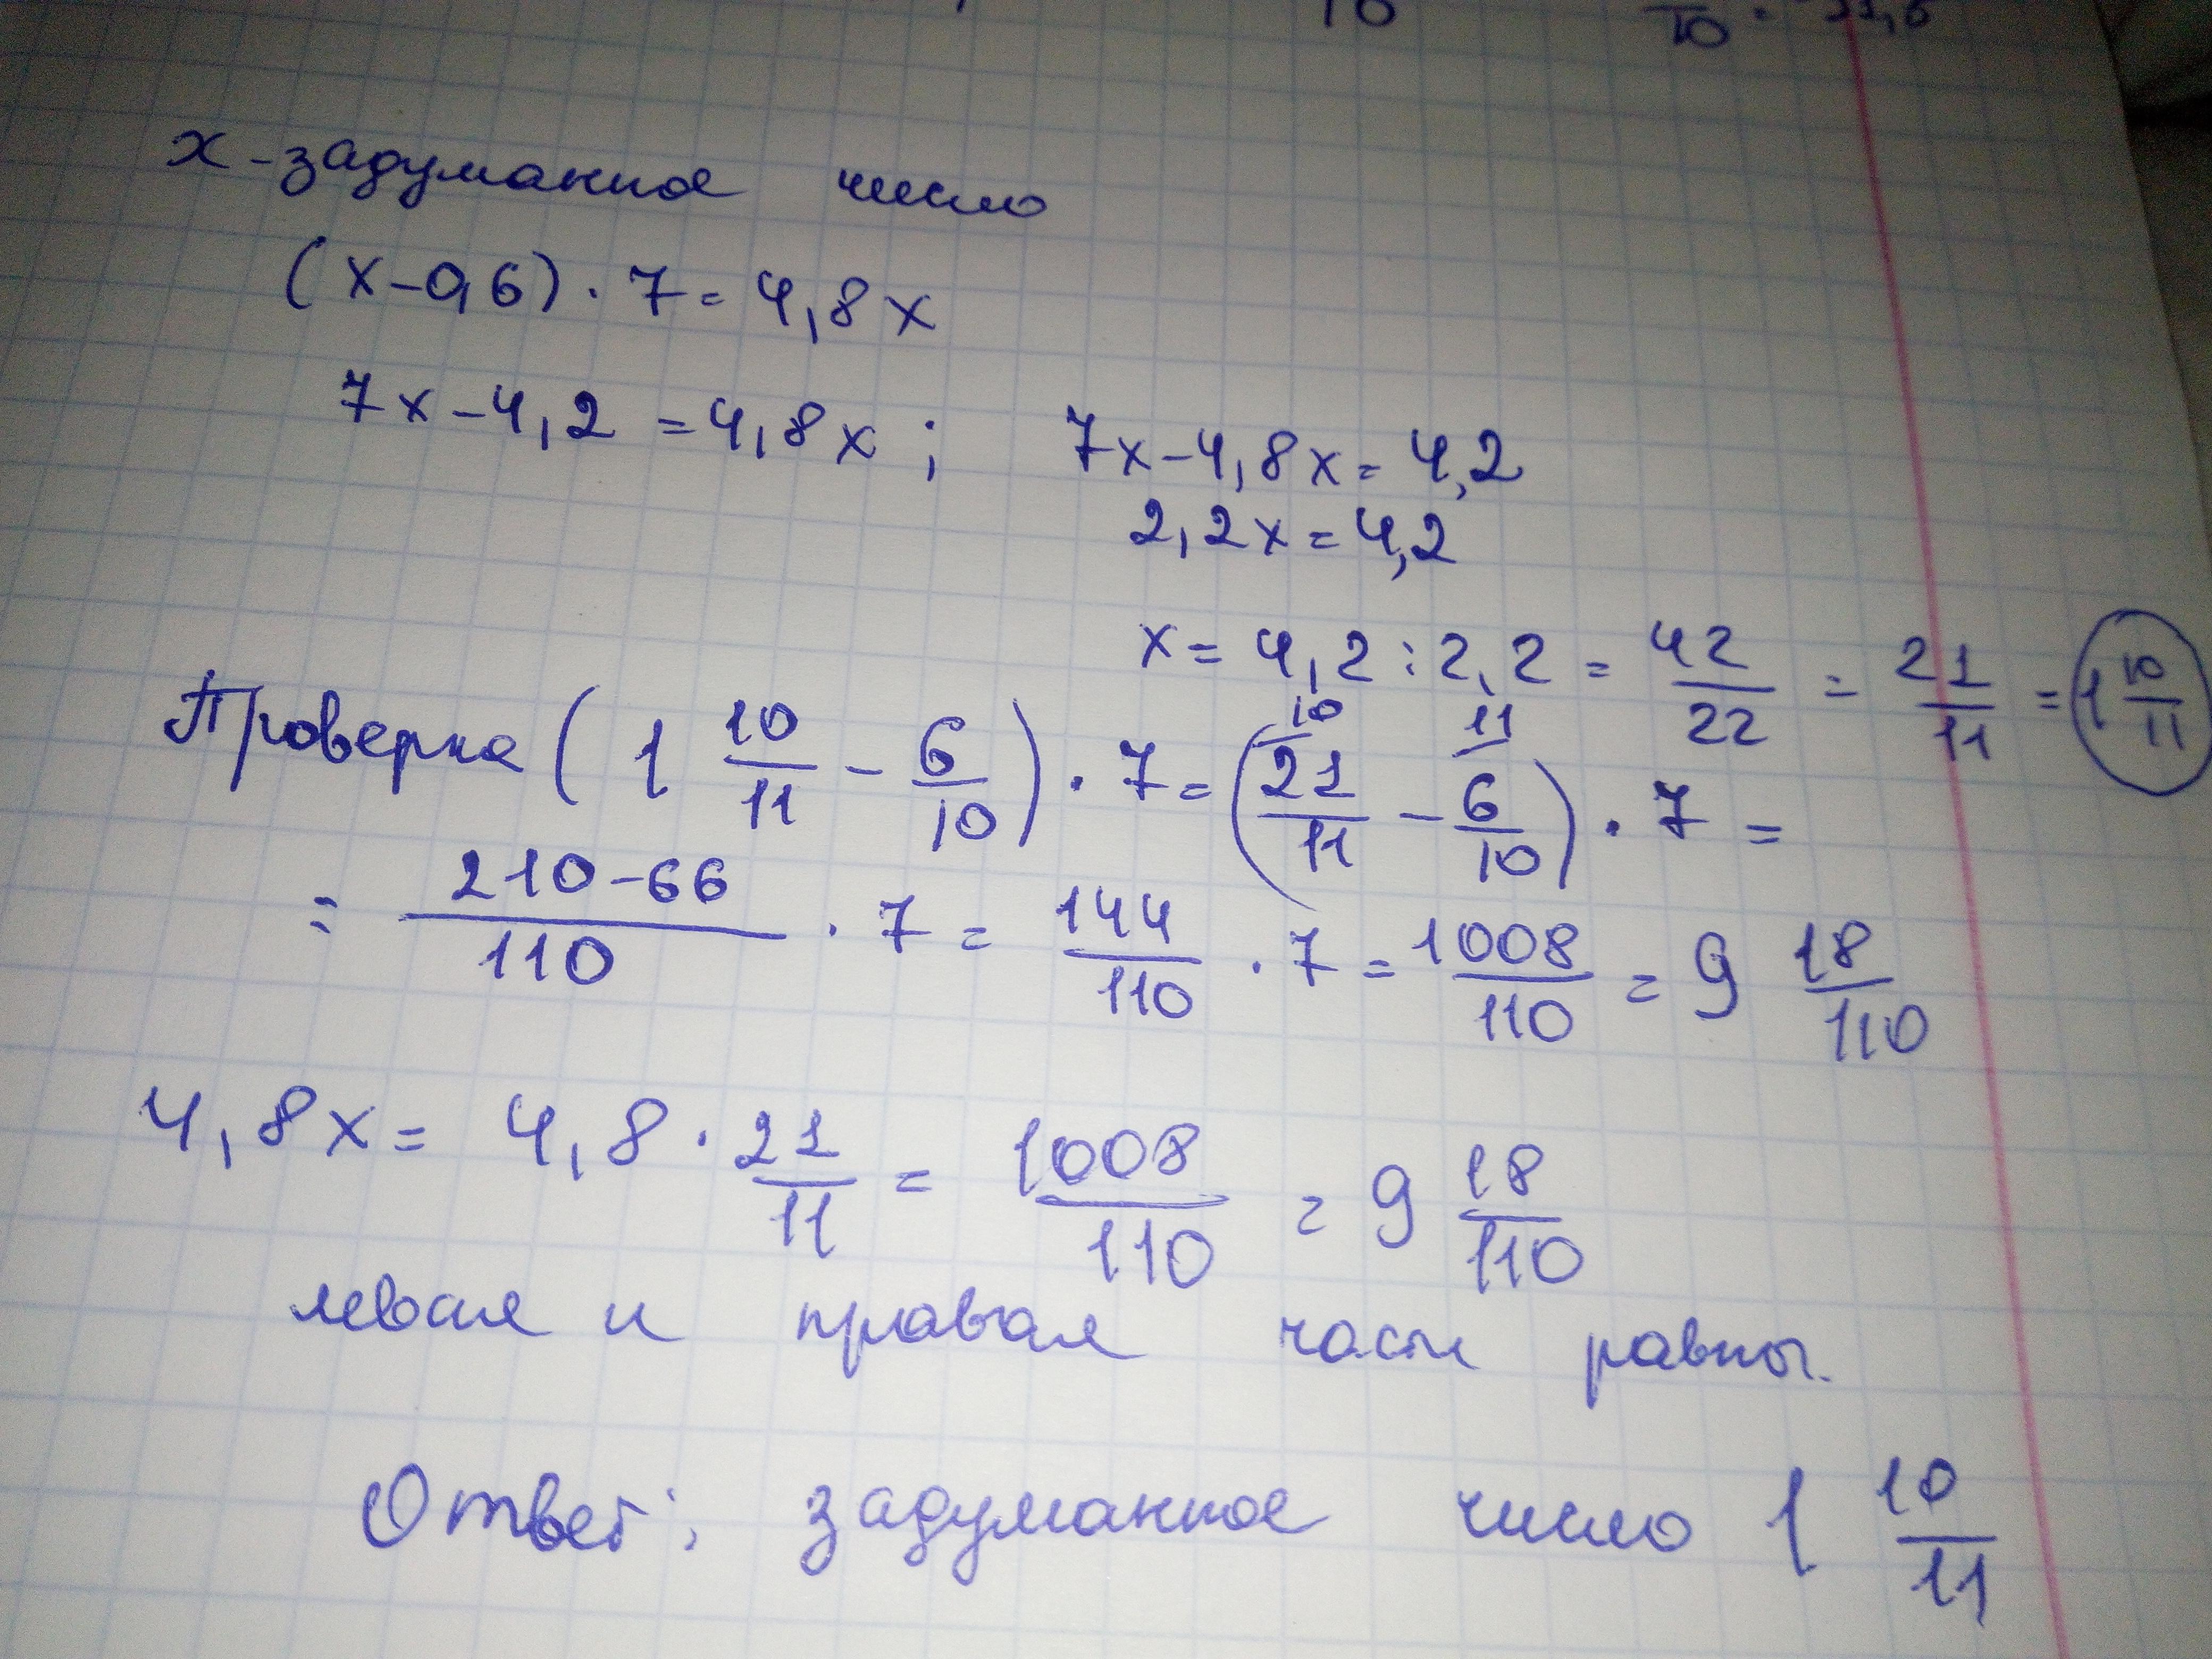 10 10 · 11,6
x - задуманное число
(x - 0,6) · 7 = 4,8x
7x - 4,2 = 4,8x ; 7x - 4,8x = 4,2
2,2x = 4,2
x = 4,2 : 2,2 = 42/22 = 21/11 = 1 10/11
Проверка (1 10/11 - 6/10) · 7 = (21/11 /10 - 6/10 /11) · 7 =
= 210-66/110 · 7 = 144/110 · 7 = 1008/110 = 9 18/110
4,8x = 4,8 · 21/11 = 1008/110 = 9 18/110
левая и правая части равны.
Ответ: задуманное число 1 10/11